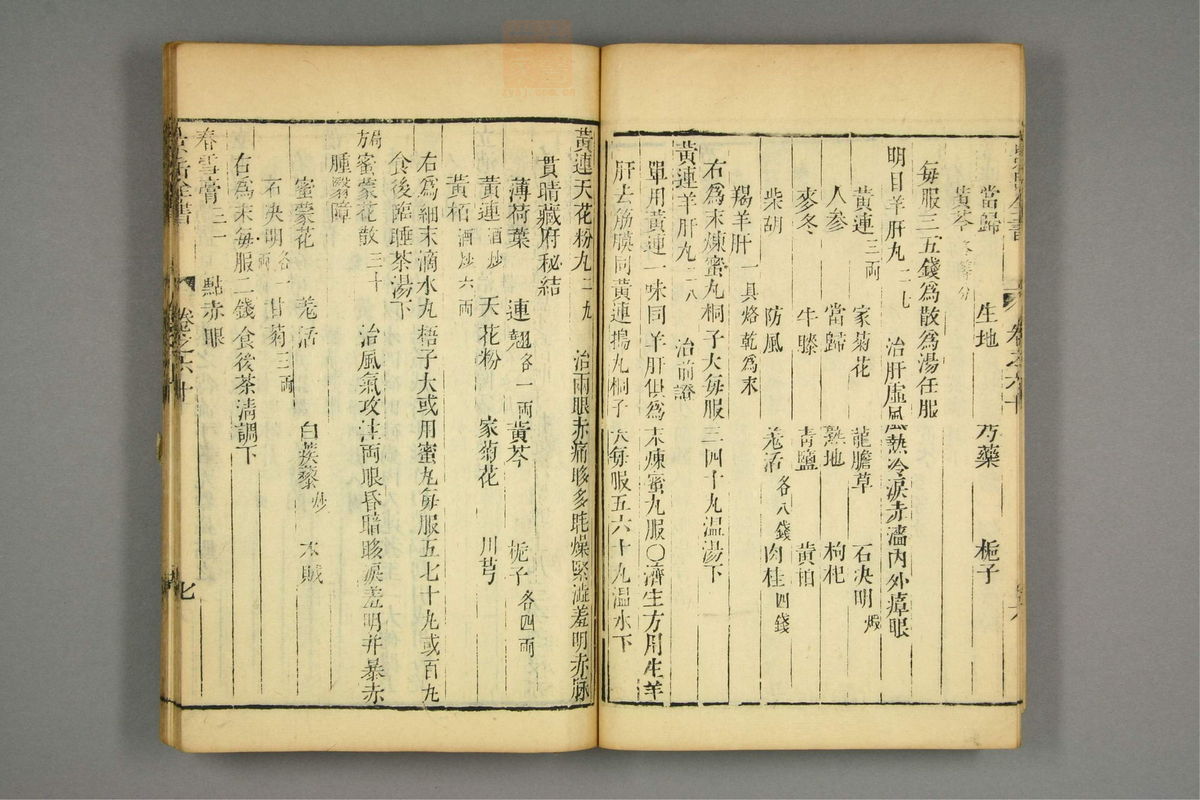 當歸 生地 芍藥 梔子
黃芩 各等分
每服三五錢爲散爲湯任服
明目羊肝丸 二七 治肝虛風熱冷淚赤濇內外瘴眼
黃連 三兩 家菊花 龍膽草 石決明 煅
人參 當歸 熟地 枸杞
麥冬 牛膝 青鹽 黃栢
柴胡 防風 羗活 各八錢 肉桂 四錢
羯羊肝 一具烙乾爲末
右爲末煉蜜丸桐子大每服三四十丸温湯下
黃連羊肝丸 二八 治前證
單用黃連一味同羊肝俱爲末煉蜜丸服○濟生方用生羊
肝去筋膜同黃連搗丸桐子大每服五六十丸温水下
黃連天花粉丸 二九 治兩眼赤痛眵多眊燥緊澁羞明赤脉
貫睛藏府秘結
薄荷葉 連翹 各一兩 黃芩 梔子 各四兩
黃連 酒炒 天花粉 家菊花 川芎
黃栢 酒炒六兩
右爲細末滴水丸梧子大或用蜜丸每服五七十丸或百丸
食後臨睡茶湯下
局方蜜蒙花散 三十 治風氣攻注兩眼昏暗眵淚羞明并暴赤
腫翳障
蜜蒙花 羗活 白蒺藜 炒 木賊
石決明 各一兩 甘菊 三兩
右爲末每服二錢食後茶清調下
春雪膏 三一 點赤眼
景岳全書 卷之六十 七